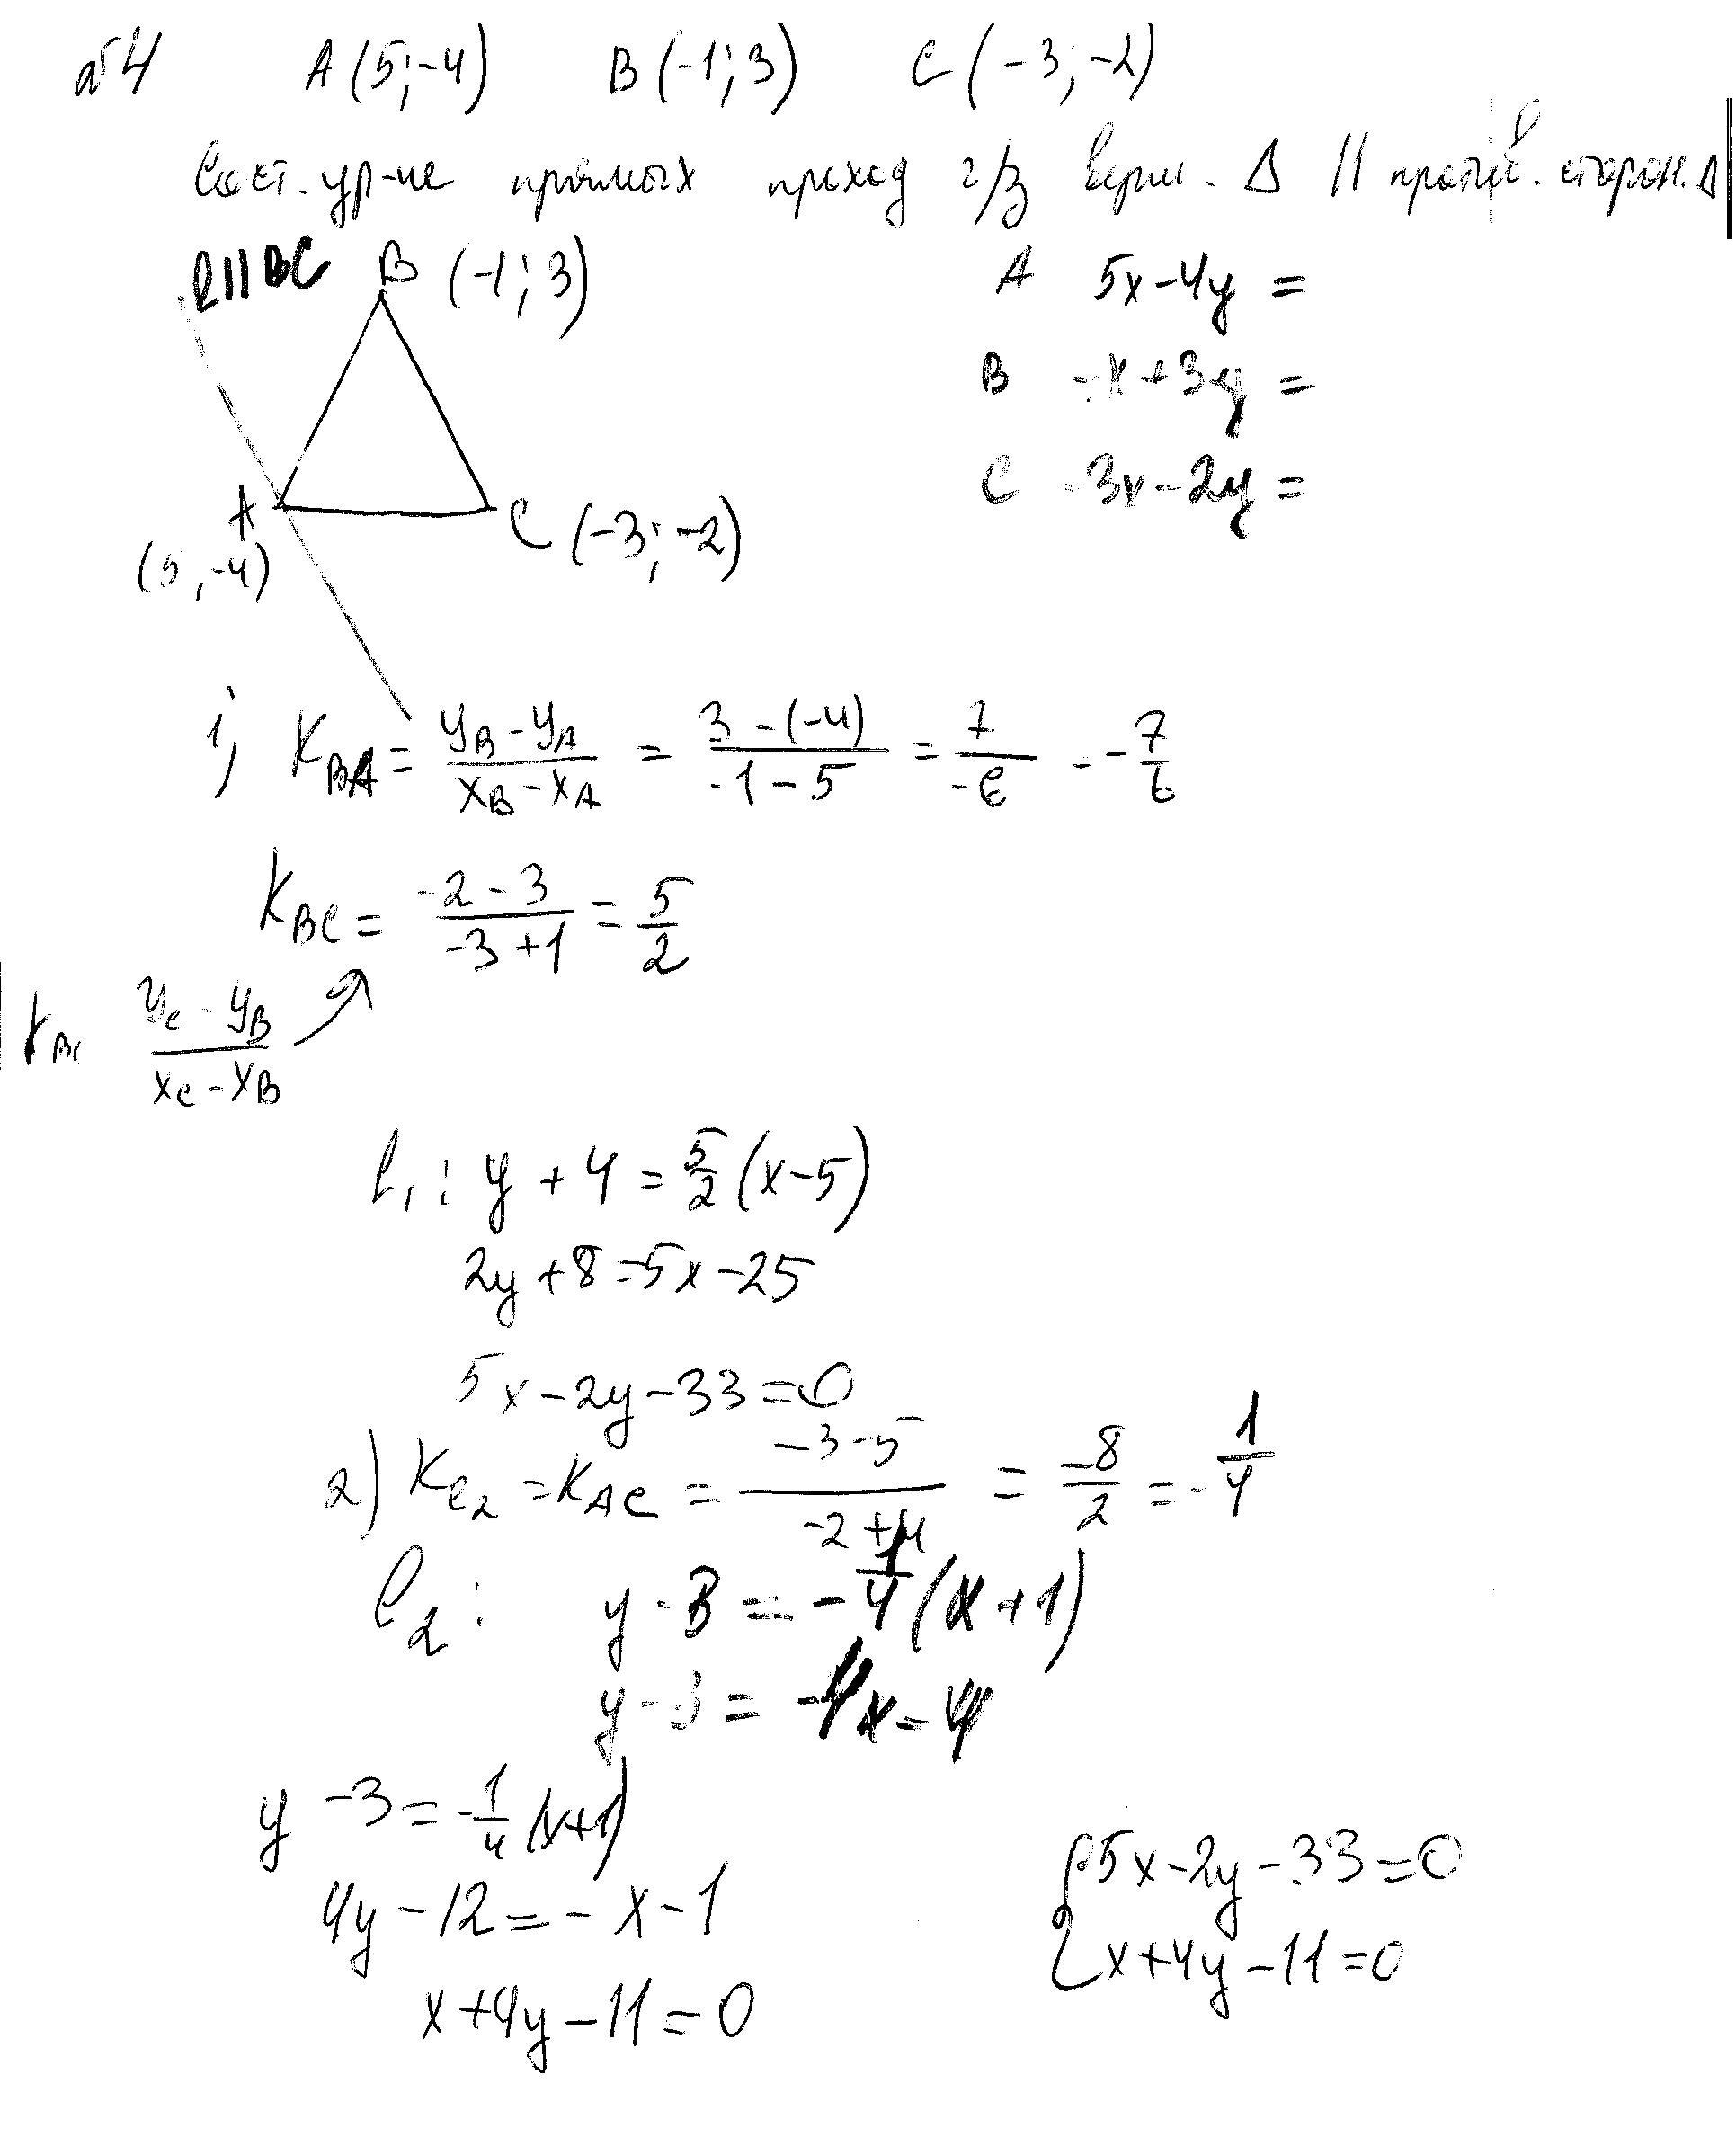 №4 A (5; -4) B (-1; 3) C (-3; -2)
Сост. ур-ие прямых проход ч/з верш. Δ || против. сторон. Δ
l || BC B (-1; 3)
A 5x-4y =
B -x+3y =
C -3x-2y =
A (5, -4) C (-3; -2)
1) K_BA = (y_B - y_A)/(x_B - x_A) = (3-(-4))/(-1-5) = 7/-6 = -7/6
K_BC = (-2-3)/(-3+1) = 5/2
K_BC (y_C - y_B)/(x_C - x_B)
l₁: y+4 = 5/2 (x-5)
2y+8=5x-25
5x-2y-33=0
2) K_l₂ = K_AC = (-3-5)/(-2+4) = -8/2 = -1/4
l₂: y-3 = -1/4 (x+1)
y-3 = -4x-4
y-3 = -1/4 (x+1)
4y-12 = -x-1
x+4y-11=0
{5x-2y-33=0
x+4y-11=0